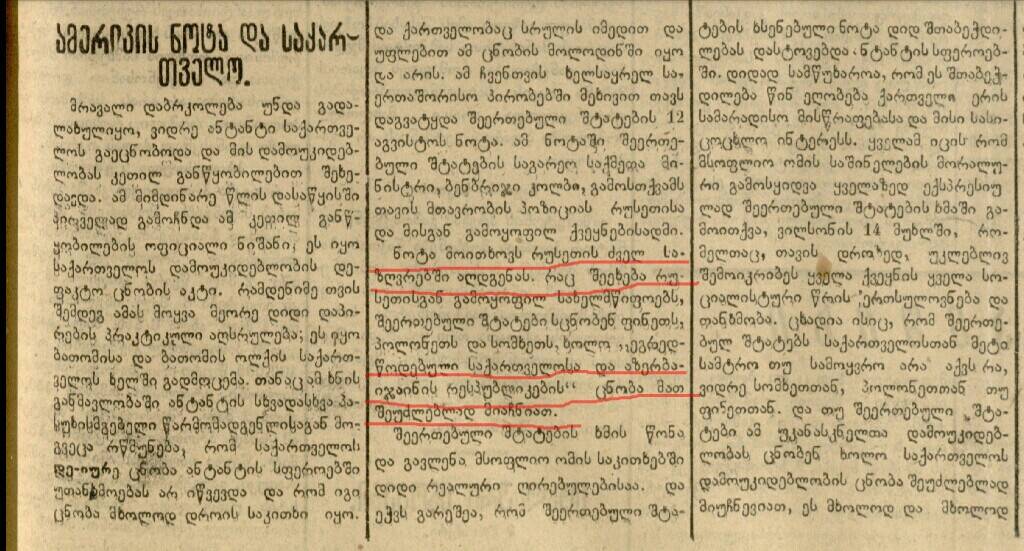 ამერიკის ნოტა და საქარ-
თველო.
მრავალი დაბრკოლება უნდა გადა-
ლახულიყო, ვიდრე ანტანტი საქართვე-
ლოს გაეცნობოდა და მის დამოუკიდებ-
ლობას კეთილ განწყობილებით შეხე-
დავდა. ამ მიმდინარე წლის დასაწყისში
პირველად გამოჩნდა ამ კეთილ განწ-
ყობილების ოფიციალი ნიშანი, ეს იყო
საქართველოს დამოუკიდებლობის დე-
ფაქტო ცნობის აქტი. რამდენიმე თვის
შემდეგ ამას მოყვა მეორე დიდი დაპი-
რების პრაქტიკული აღსრულება; ეს იყო
ბათომისა და ბათომის ოლქის საქართ-
ველოს ხელში გადმოცემა. თანაც ამ ხნის
განმავლობაში ანტანტის სხვადასხვა პა-
სუხისმგებელი წარმომადგენლისაგან მო-
გვეცა რწმუნება, რომ საქართველოს
დე-იურე ცნობა ანტანტის სფეროებში
უთანხმოებას არ იწვევდა და რომ იგი
ცნობა მხოლოდ დროის საკითხი იყო.
და ქართველობაც სრულის იმედით და
უფლებით ამ ცნობის მოლოდინში იყო
და არის. ამ ჩვენთვის ხელსაყრელ სა-
ერთაშორისო პირობებში მეხივით თავს
დაგვატყდა შეერთებული შტატების 12
აგვისტოს ნოტა. ამ ნოტაში შეერთე-
ბული შტატების საგარეო საქმეთა მი-
ნისტრი, ბენბრიჯი კოლბი, გამოსთქვამს
თავის მთავრობის პოზიციას რუსეთისა
და მისგან გამოყოფილ ქვეყნებისადმი.
ნოტა მოითხოვს რუსეთის ძველ სა-
ზღვრებში აღდგენას. რაც შეეხება რუ-
სეთისგან გამოყოფილ სახელმწიფოებს,
შეერთებული შტატები სცნობენ ფინეთს,
პოლონეთს და სომხეთს, ხოლო „ეგრედ-
წოდებული საქართველოსა და აზერბა-
იჯანის რესპუბლიკების“ ცნობა მათ
შეუძლებლად მიაჩნიათ.
შეერთებული შტატების ხმის წონა
და გავლენა მსოფლიო ომის საკითხებში
დიდი რეალური ღირებულებისაა. და
ეჭვს გარეშეა, რომ შეერთებული შტა-
ტების ხსენებული ნოტა დიდ შთაბეჭდი-
ლებას დასტოვებდა ანტანტის სფეროებ-
ში. დიდად სამწუხაროა, რომ ეს შთაბეჭ-
დილება წინ ეღობება ქართველი ერის
სამარადისო მისწრაფებასა და მისი სასი-
ცოცხლო ინტერესს. ყველამ იცის რომ
მსოფლიო ომის საშინელების მორალუ-
რი გამოსყიდვა ყველაზედ ექსპრესიუ
ლად შეერთებული შტატების ხმაში გა-
მოითქვა, ვილსონის 14 მუხლში, რო-
მელთაც, თავის დროზედ, უკლებლივ
შემოიკრიბეს ყველა ქვეყნის ყველა სო-
ციალისტური წრის ერთსულოვნება და
თანხმობა. ცხადია ისიც, რომ შეერთე-
ბულ შტატებს საქართველოსთან მეტი
სამტრო თუ სამოყვრო არა აქვს რა,
ვიდრე სომხეთთან, პოლონეთთან თუ
ფინეთთან. და თუ შეერთებული შტა-
ტები ამ უკანასკნელთა დამოუკიდებ-
ლობას ცნობენ ხოლო საქართველოს
დამოუკიდებლობის ცნობა შეუძლებლად
მიუჩნევიათ, ეს მხოლოდ და მხოლოდ